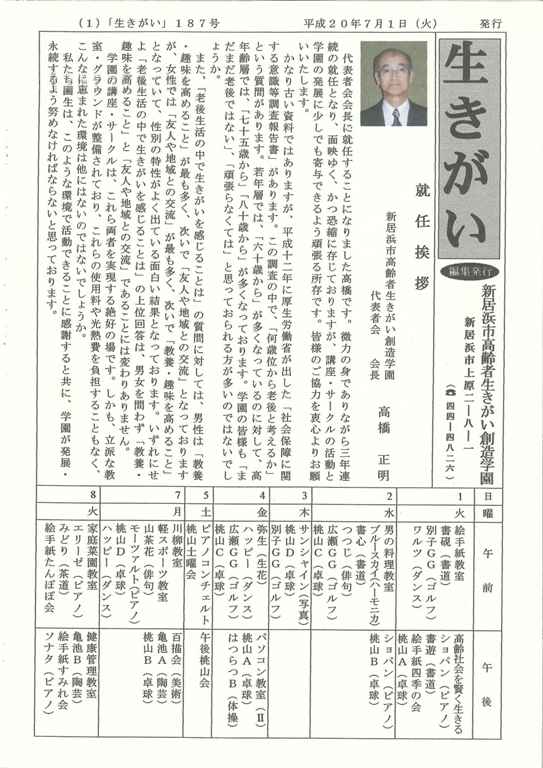 (1)「生きがい」187号
平成20年7月1日(火)
発行
生きがい
編集発行
新居浜市高齢者生きがい創造学園
新居浜市上原二ー八ー一
(☎四四ー四八二六)
就任挨拶
新居浜市高齢者生きがい創造学園
代表者会 会長
高橋 正明
代表者会会長に就任することになりました高橋です。微力の身でありながら三年連
続の就任となり、面映ゆく、かつ恐縮に存じておりますが、講座・サークルの活動と
学園の発展に少しでも寄与できるよう頑張る所存です。皆様のご協力を衷心よりお願
いいたします。
かなり古い資料ではありますが、平成十二年に厚生労働省が出した「社会保障に関
する意識等調査報告書」があります。この調査の中で、「何歳位から老後と考えるか」
という質問があります。若年層では、「六十歳から」が多くなっているのに対して、高
年齢層では、「七十五歳から」「八十歳から」が多くなっております。学園の皆様も「ま
だまだ老後ではない」、「頑張らなくては」と思っておられる方が多いのではないでし
ょうか。
また、「老後生活の中で生きがいを感じることは」の質問に対しては、男性は「教養
・趣味を高めること」が最も多く、次いで「友人や地域との交流」となっております
が、女性では「友人や地域との交流」が最も多く、次いで「教養・趣味を高めること」
となっていて、性別の特性がよく出ている面白い結果となっております。いずれにせ
よ「老後生活の中で生きがいを感じることは」の上位回答は、男女を問わず「教養・
趣味を高めること」と「友人や地域との交流」であることには変わりありません。
学園の講座・サークルは、これら両者を実現する絶好の場です。しかも、立派な教
室・グラウンドが整備されており、これらの使用料や光熱費を負担することもなく、
こんなに恵まれた環境は他にはないのではないでしょうか。
私たち園生は、このような環境で活動できることに感謝すると共に、学園が発展・
永続するよう努めなければならないと思っております。
日 曜 午前 午後
1 火
絵手紙教室
書硯(書道)
別子GG(ゴルフ)
ワルツ(ダンス)
高齢社会を賢く生きる
ショパン(ピアノ)
書遊(書道)
絵手紙四季の会
桃山A(卓球)
2 水
男の料理教室
ブルースカイ(ハーモニカ)
つつじ(俳句)
書心(書道)
広瀬GG(ゴルフ)
桃山C(卓球)
ショパン(ピアノ)
桃山B(卓球)
3 木
サンシャイン(写真)
桃山D(卓球)
別子GG(ゴルフ)
4 金
弥生(生花)
ハッピー(ダンス)
広瀬GG(ゴルフ)
桃山C(卓球)
パソコン教室(Ⅱ)
桃山A(卓球)
はつらつB(体操)
5 土
ピアノコンチェルト
桃山土曜会
午後桃山会
7 月
川柳教室
軽スポーツ教室
山茶花(俳句)
モーツァルト(ピアノ)
桃山D(卓球)
ハッピー(ダンス)
百描会(美術)
亀池A(陶芸)
桃山B(卓球)
8 火
家庭菜園教室
エリーゼ(ピアノ)
みどり(茶道)
絵手紙たんぽぽ会
健康管理教室
亀池B(陶芸)
絵手紙すみれ会
ソナタ(ピアノ)